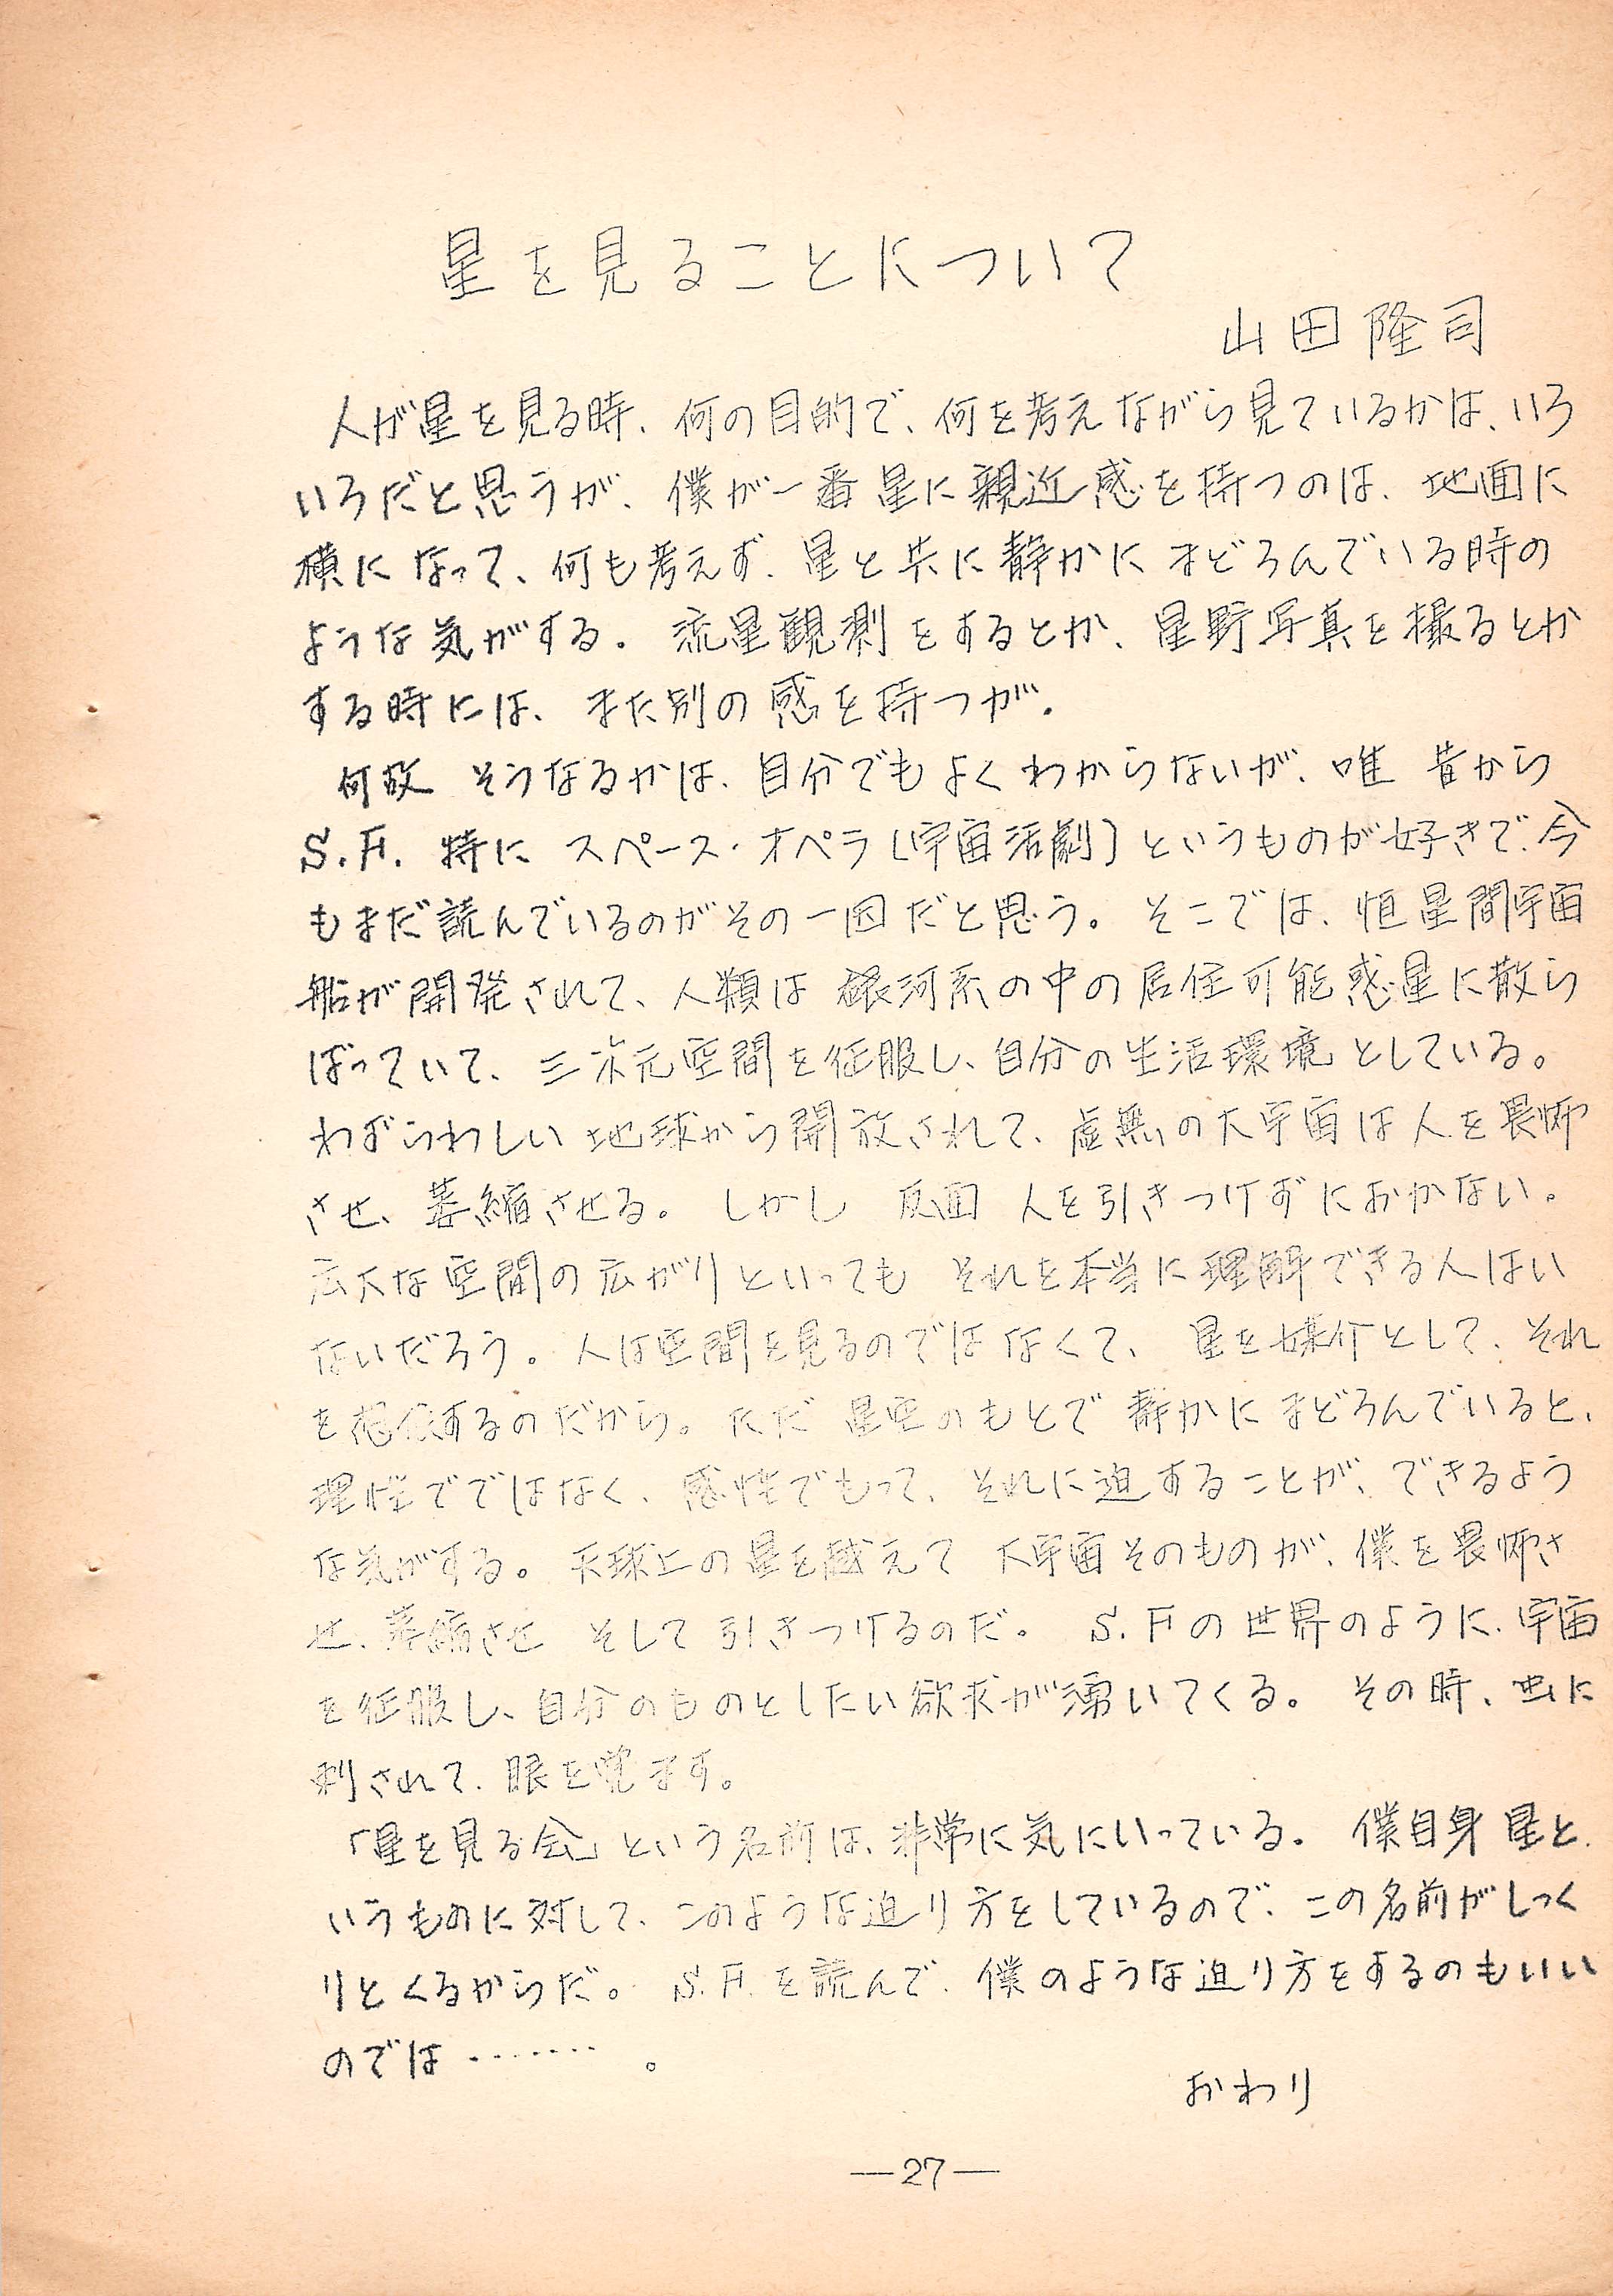 星を見ることについて
山田隆司
人が星を見る時、何の目的で、何を考えながら見ているかは、いろ
いろだと思うが、僕が一番星に親近感を持つのは、地面に
横になって、何も考えず、星と共に静かにまどろんでいる時の
ような気がする。流星観測をするとか、星野写真を撮るとか
する時には、また別の感を持つが。
何故 そうなるかは、自分でもよくわからないが、唯 昔から
S.F. 特に スペース・オペラ〔宇宙活劇〕というものが好きで、今
もまだ読んでいるのがその一因だと思う。そこでは、恒星間宇宙
船が開発されて、人類は銀河系の中の居住可能惑星に散ら
ばっていて、三次元空間を征服し、自分の生活環境としている。
わずらわしい地球から開放されて、虚無の大宇宙は人を畏怖
させ、萎縮させる。しかし 反面 人を引きつけずにおかない。
広大な空間の広がりといっても それを本当に理解できる人はい
ないだろう。人は空間を見るのではなくて、星を媒介として、それ
を想像するのだから。ただ 星空のもとで静かにまどろんでいると、
理性でではなく、感性でもって、それに迫することが、できるよう
な気がする。天球上の星を越えて 大宇宙そのものが、僕を畏怖さ
せ、萎縮させ そして引きつけるのだ。S.Fの世界のように、宇宙
を征服し、自分のものとしたい欲求が湧いてくる。その時、虫に
刺されて、眼を覚ます。
「星を見る会」という名前は、非常に気にいっている。僕自身 星と
いうものに対して、このような迫り方をしているので、この名前がしっく
りとくるからだ。S.F.を読んで、僕のような迫り方をするのもいい
のでは……。
おわり
—27—